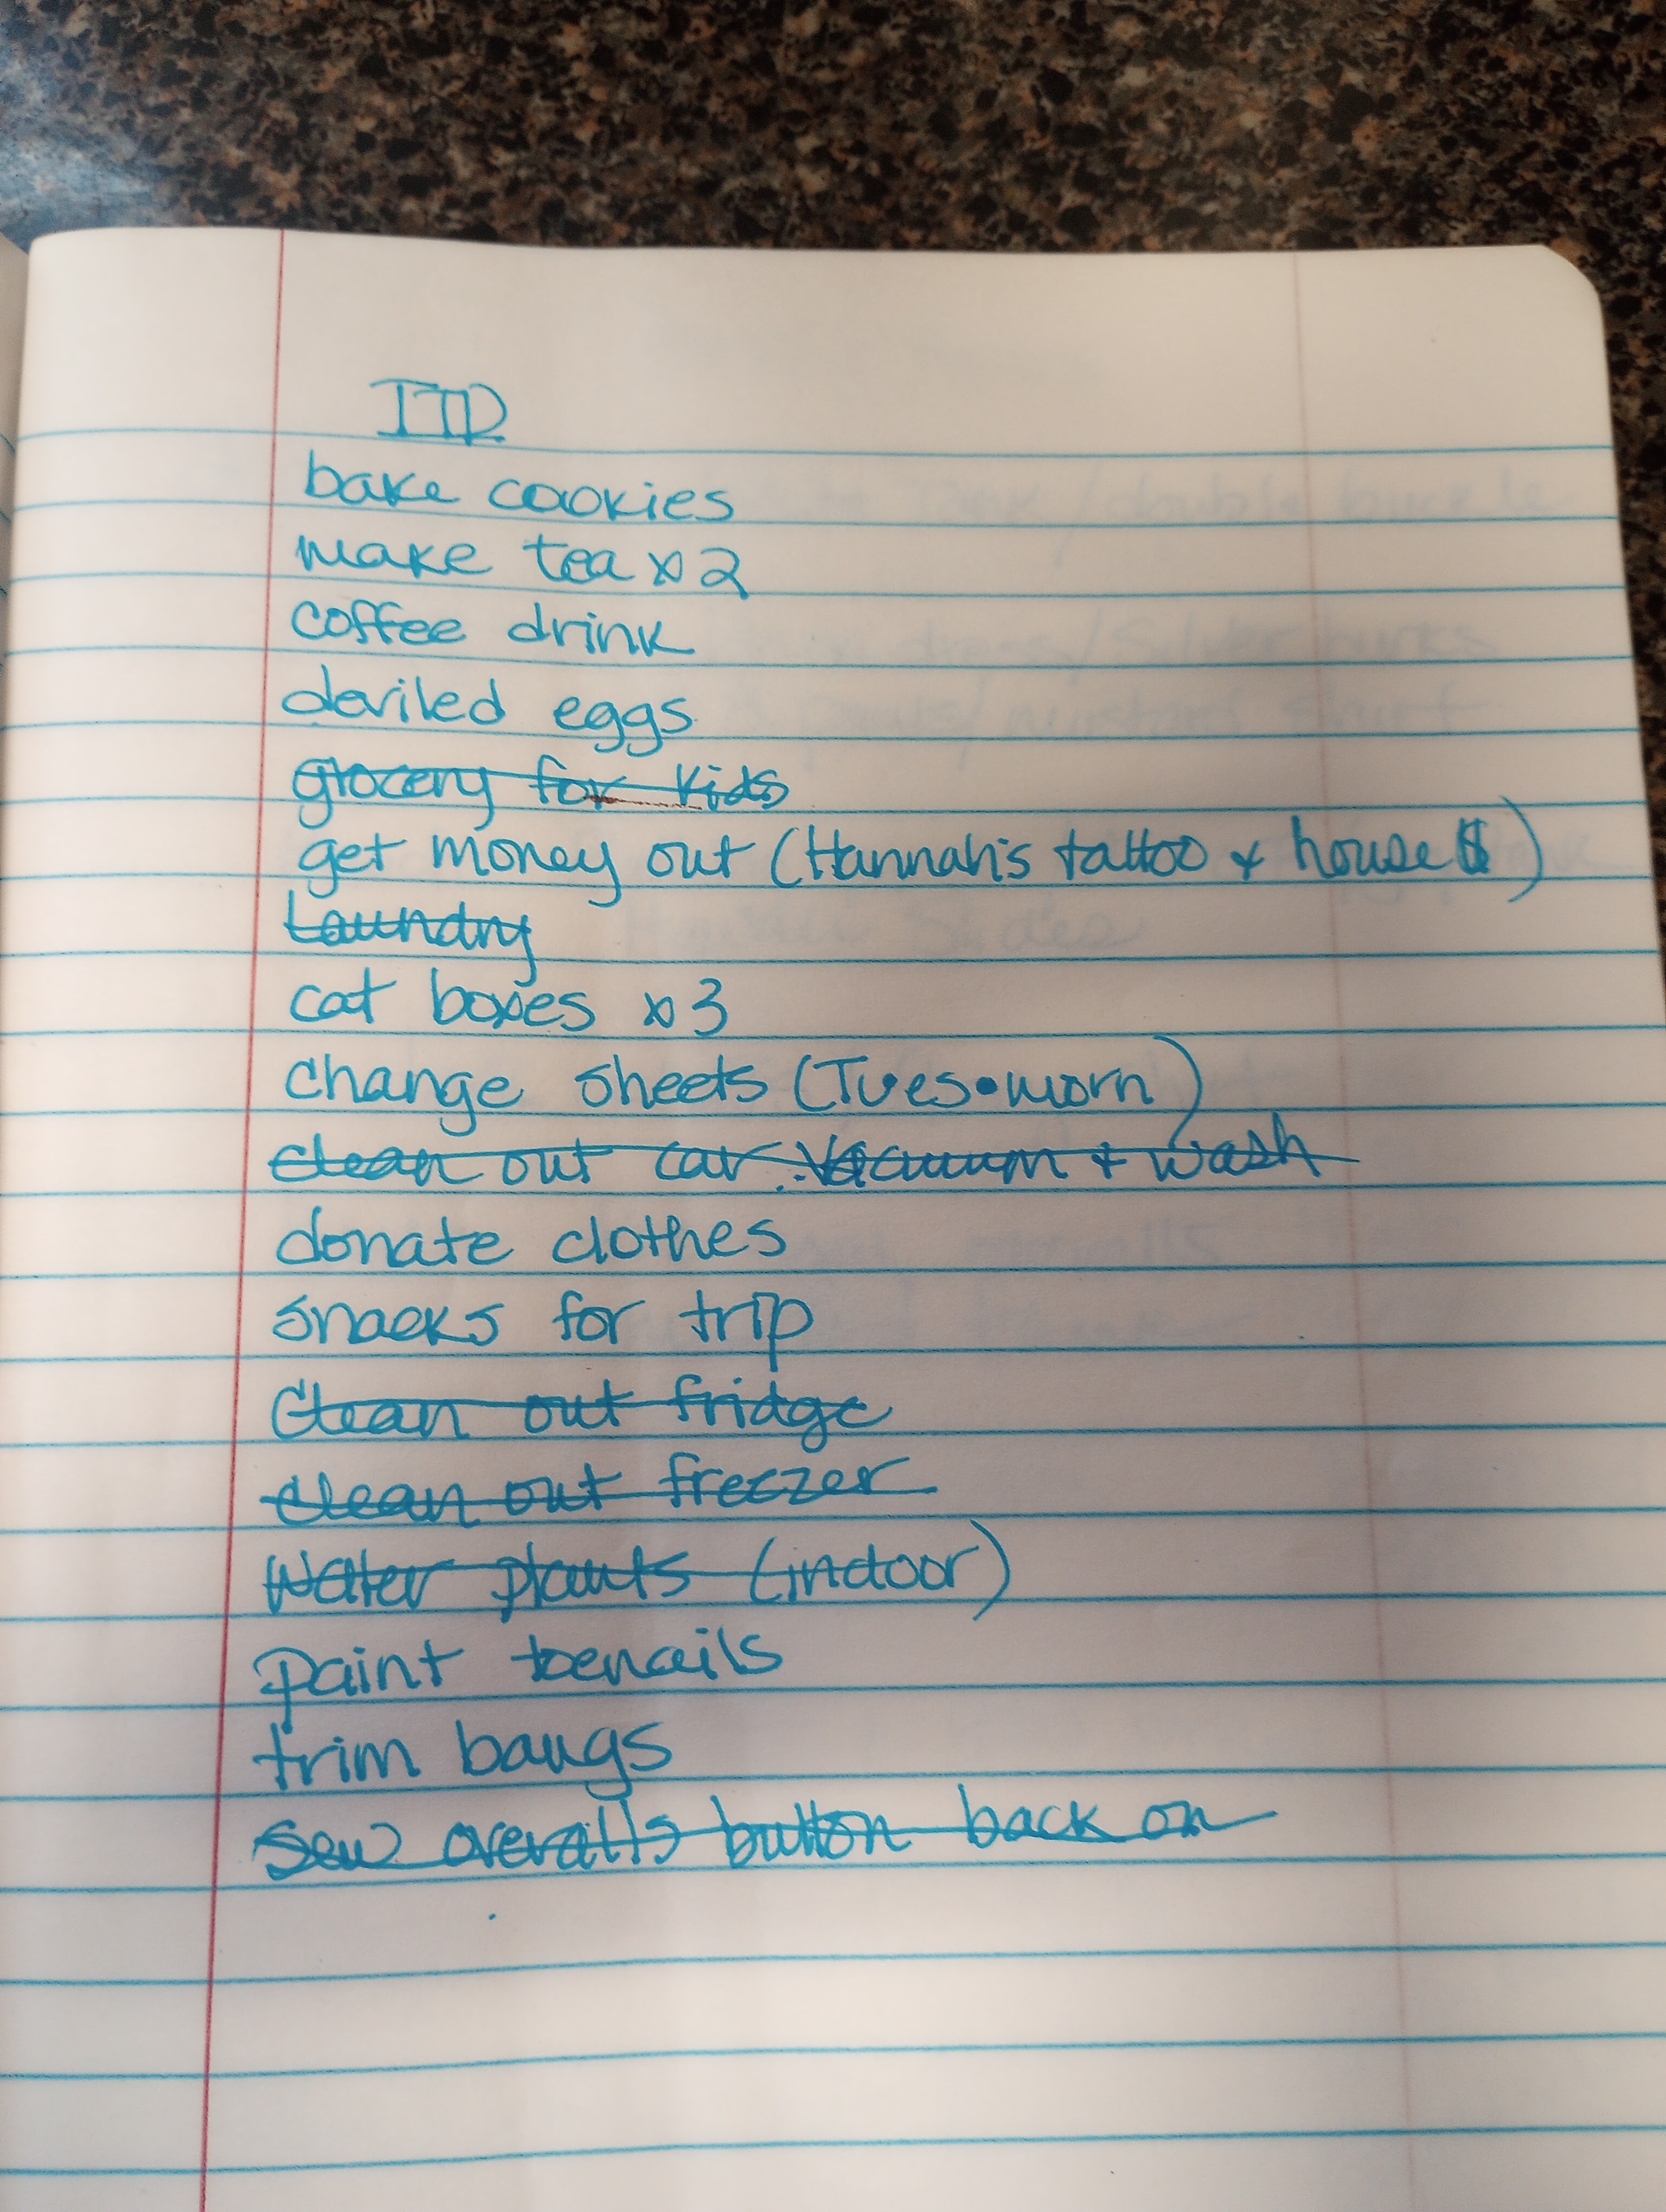 TTD
bake cookies
make tea x2
coffee drink
deviled eggs
grocery for kids
get money out (Hannah's tattoo & house $)
Laundry
cat boxes x3
change sheets (Tues•morn)
clean out car. Vacuum + wash
donate clothes
snacks for trip
Clean out fridge
clean out freezer
Water plants (indoor)
paint toenails
trim bangs
Sew overalls button back on